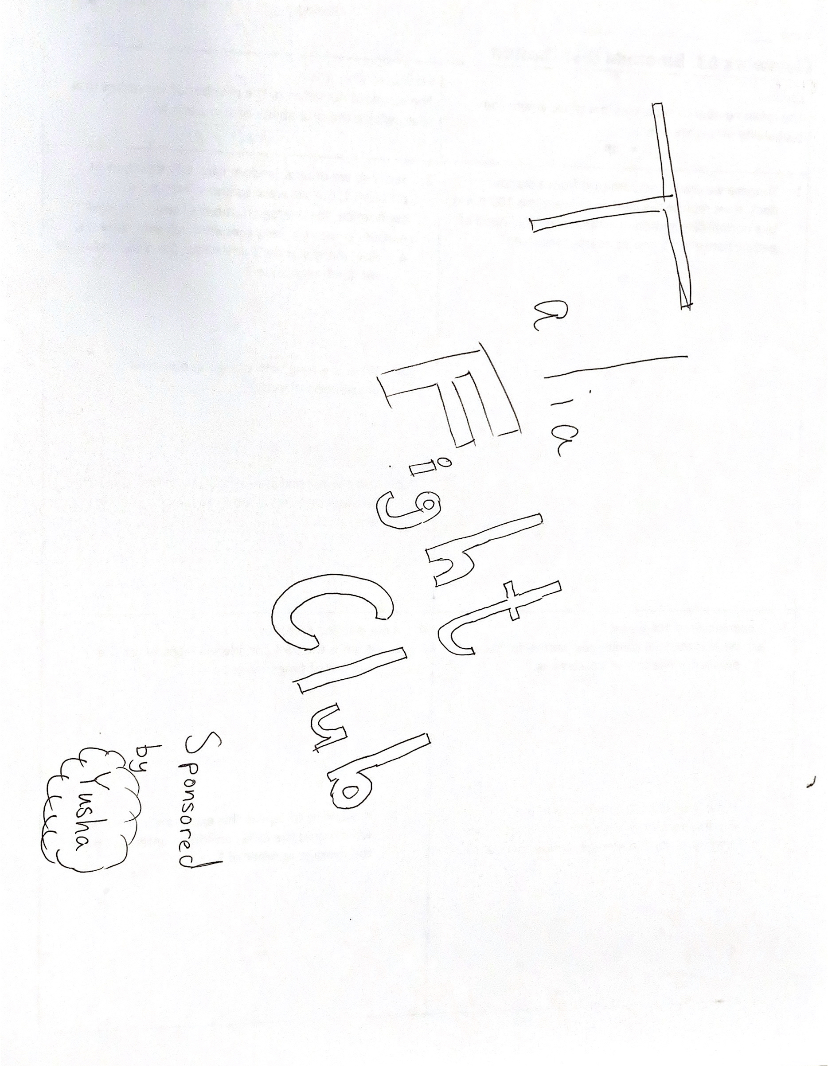 Talia
Fight
Club
Sponsored
by
Yusha